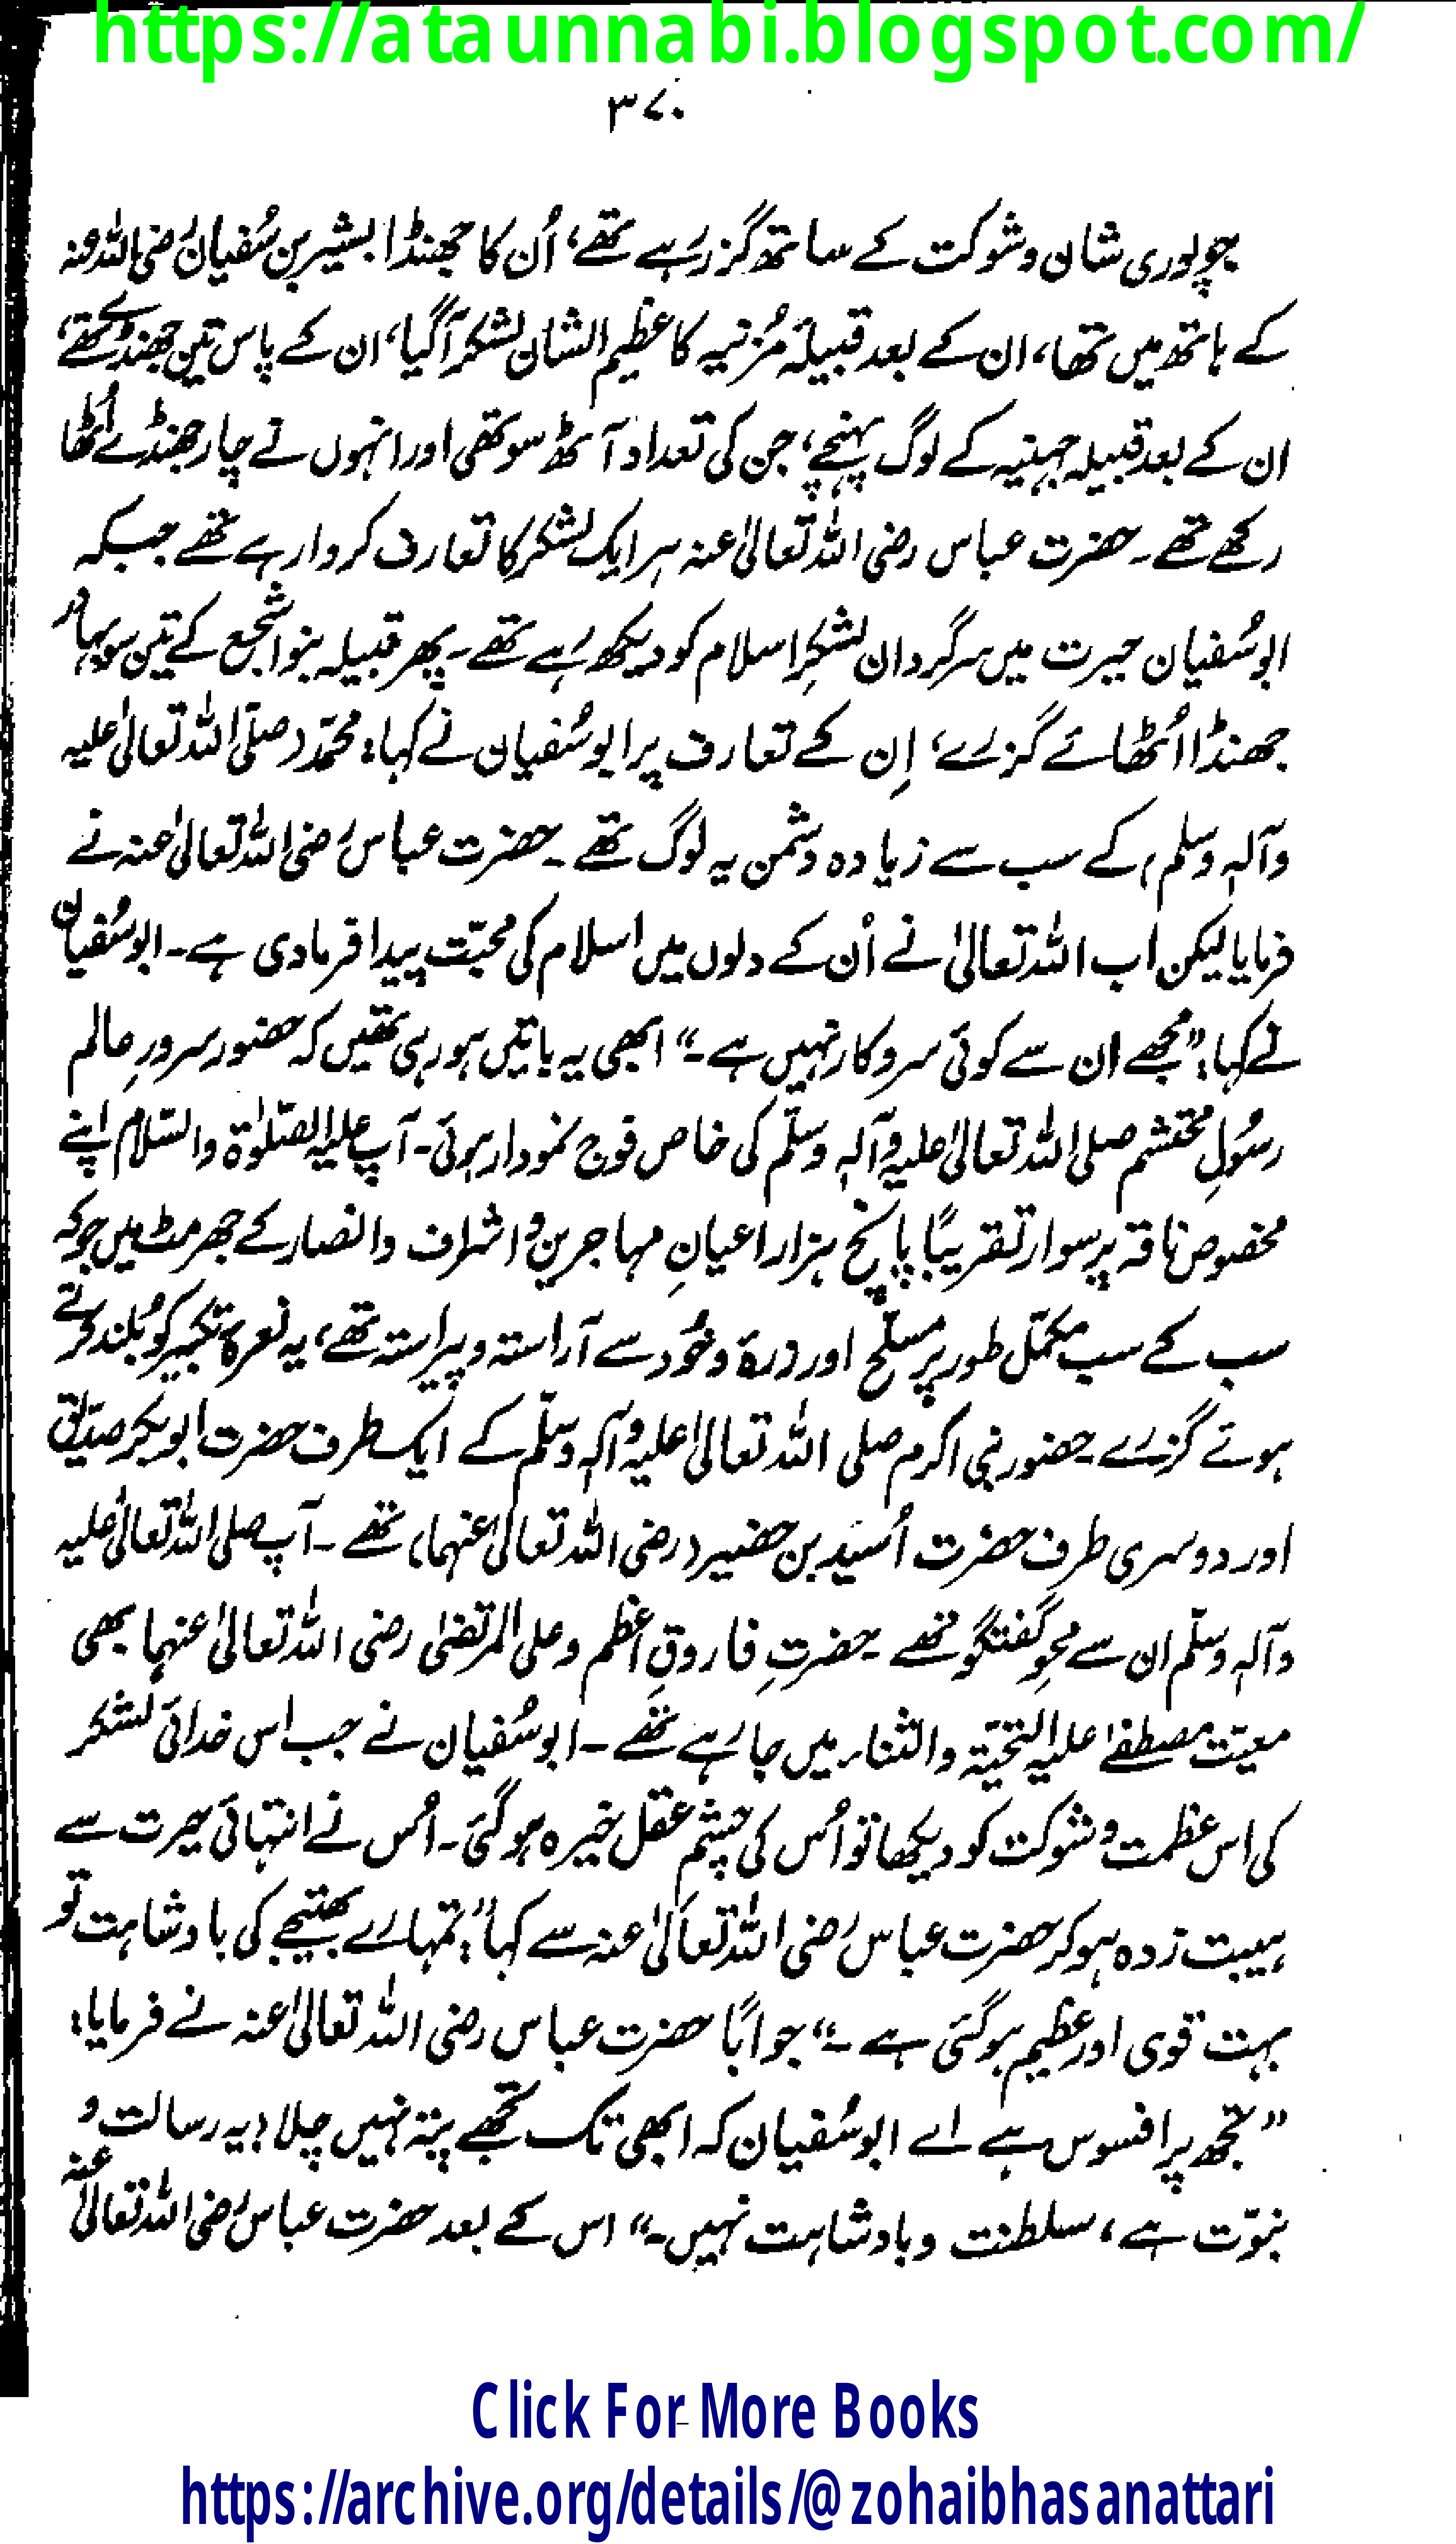 https://ataunnabi.blogspot.com/
۳۷۰
جو پوری شان و شوکت کے ساتھ گزر رہے تھے، اُن کا جھنڈا بشیر بن سُفیان رضی اللہ عنہ
کے ہاتھ میں تھا، ان کے بعد قبیلہ مُزنیہ کا عظیم الشان لشکر آگیا، ان کے پاس تین جھنڈے تھے،
ان کے بعد قبیلہ جہنیہ کے لوگ پہنچے، جن کی تعداد آٹھ سو تھی اور انہوں نے چار جھنڈے اُٹھا
رکھے تھے۔ حضرت عباس رضی اللہ تعالیٰ عنہ ہر ایک لشکر کا تعارف کروا رہے تھے جبکہ
ابوسُفیان حیرت میں سرگردان لشکرِ اسلام کو دیکھ رہے تھے۔ پھر قبیلہ بنو اشجع کے تین سو بہادر
جھنڈا اُٹھائے گزرے، اِن کے تعارف پر ابوسُفیان نے کہا: محمّد (صلّی اللہ تعالیٰ علیہ
وآلہٖ وسلم) کے سب سے زیادہ دشمن یہ لوگ تھے۔ حضرت عباس رضی اللہ تعالیٰ عنہ نے
فرمایا لیکن اب اللہ تعالیٰ نے اُن کے دلوں میں اسلام کی محبّت پیدا فرما دی ہے۔ ابوسُفیان
نے کہا: ”مجھے ان سے کوئی سروکار نہیں ہے۔“ ابھی یہ باتیں ہو رہی تھیں کہ حضور سرورِ عالم
رسُولِ محتشم صلی اللہ تعالیٰ علیہ وآلہٖ وسلّم کی خاص فوج نمودار ہوئی۔ آپ علیہ الصّلوٰۃ والسّلام اپنے
مخصوص ناقہ پر سوار تقریبًا پانچ ہزار اعیانِ مہاجرین و اشراف و انصار کے جھرمٹ میں جو کہ
سب کے سب مکمّل طور پر مسلّح اور زرہ و خُود سے آراستہ و پیراستہ تھے، یہ نعرۂ تکبیر کو بُلند کرتے
ہوئے گزرے۔ حضور نبی اکرم صلی اللہ تعالیٰ علیہ وآلہٖ وسلّم کے ایک طرف حضرت ابوبکر صدّیق
اور دوسری طرف حضرت اُسَید بن حضیر (رضی اللہ تعالیٰ عنہما) تھے۔ آپ صلی اللہ تعالیٰ علیہ
وآلہٖ وسلّم ان سے محوِ گفتگو تھے۔ حضرتِ فاروقِ اعظم و علی المرتضیٰ رضی اللہ تعالیٰ عنہما بھی
معیّت مصطفےٰ علیہ التحیّۃ والثناء میں جا رہے تھے۔ ابوسُفیان نے جب اس خدائی لشکر
کی اس عظمت و شوکت کو دیکھا تو اُس کی چشم عقل خیرہ ہو گئی۔ اُس نے انتہائی حیرت سے
ہیبت زدہ ہو کر حضرت عباس رضی اللہ تعالیٰ عنہ سے کہا: ”تمہارے بھتیجے کی بادشاہت تو
بہت قوی اور عظیم ہو گئی ہے۔“ جوابًا حضرت عباس رضی اللہ تعالیٰ عنہ نے فرمایا:
”تجھ پر افسوس ہے اے ابوسُفیان کہ ابھی تک تجھے پتہ نہیں چلا (یہ رسالت و
نبوّت ہے، سلطنت و بادشاہت نہیں۔“ اس کے بعد حضرت عباس رضی اللہ تعالیٰ عنہ
Click For More Books
https://archive.org/details/@zohaibhasanattari